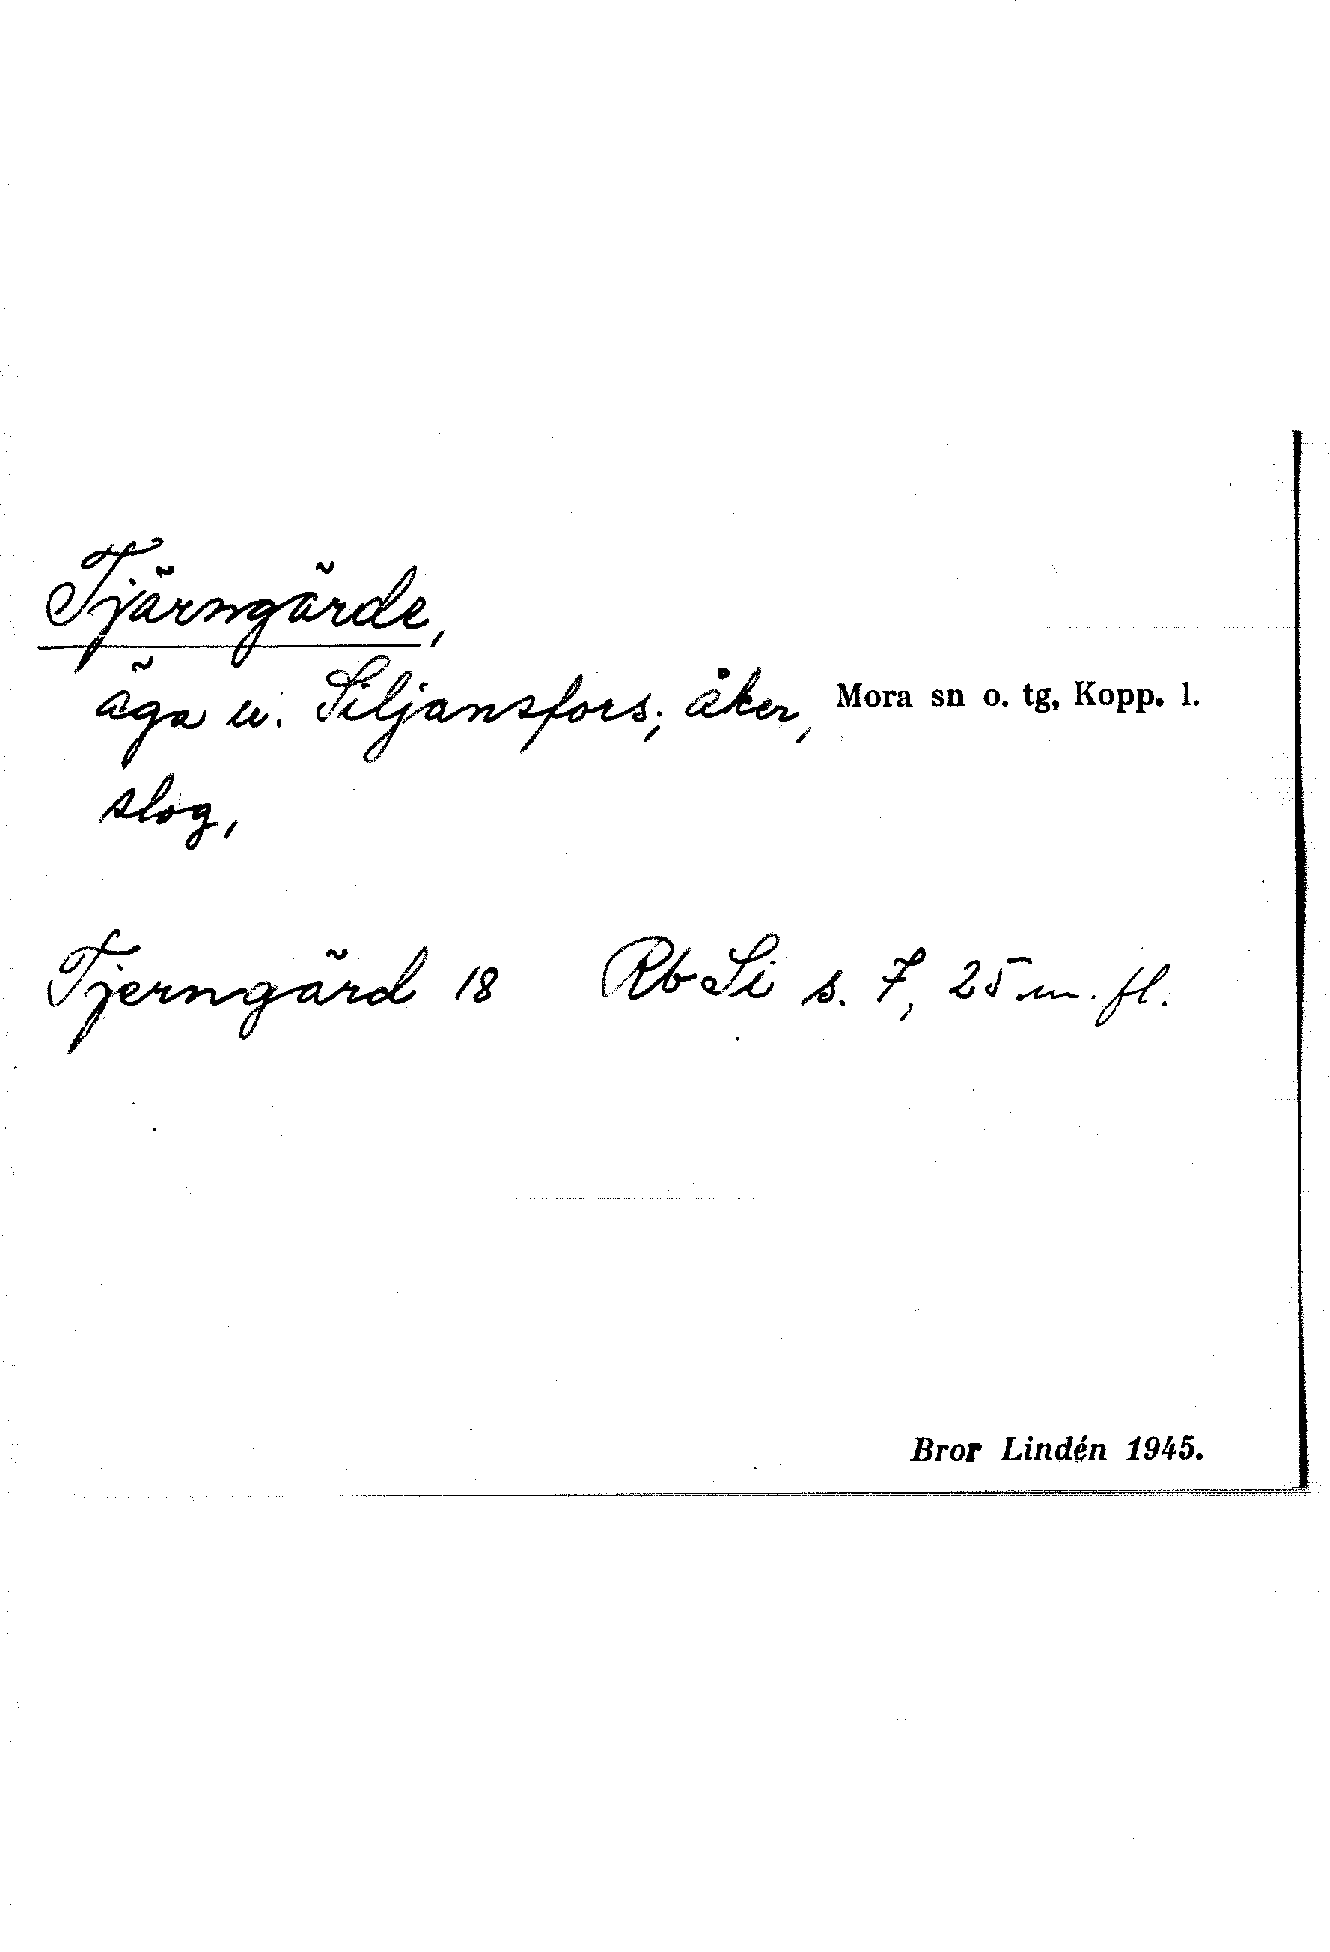 Tjärngärde,
äga u. Siljansfors; åker, Mora sn o. tg, Kopp. l.
slog,
Tjerngärd 18 Rb Si s. 7, 25 m. fl.
Bror Lindén 1945.